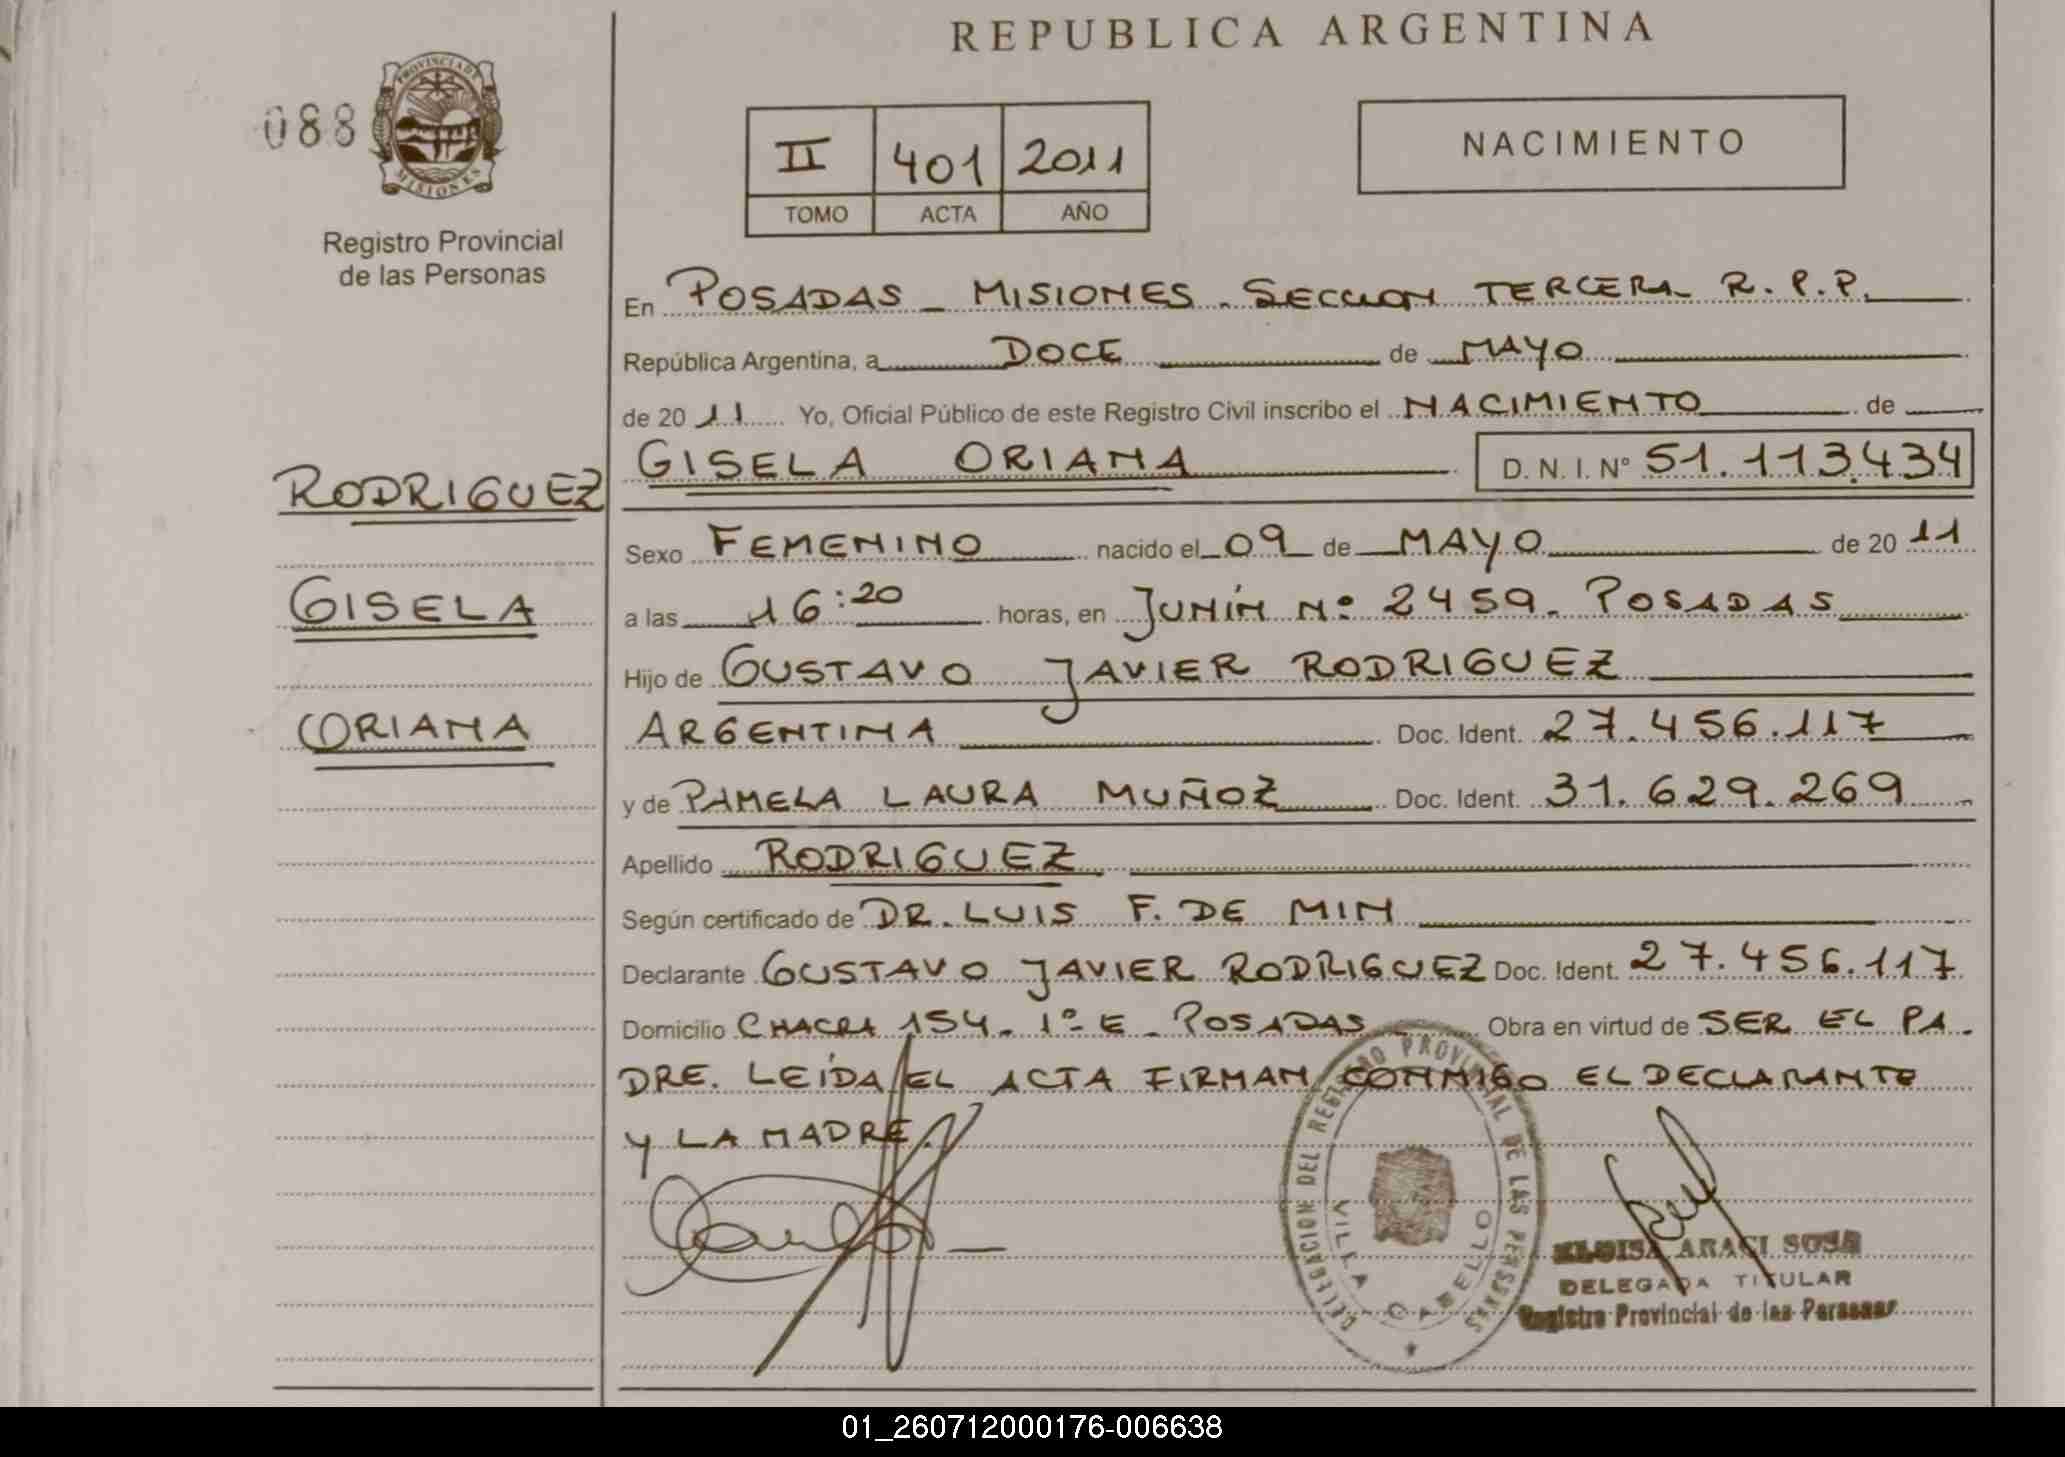 REPUBLICA ARGENTINA
088
PROVINCIA DE MISIONES
Registro Provincial
de las Personas
II 401 2011
TOMO ACTA AÑO
NACIMIENTO
En POSADAS - MISIONES - SECCION TERCERA R.P.P.
República Argentina, a DOCE de MAYO
de 20 11 Yo, Oficial Público de este Registro Civil inscribo el NACIMIENTO de
GISELA ORIANA D. N. I. N° 51.113.434
RODRIGUEZ
GISELA
ORIANA
Sexo FEMENINO nacido el 09 de MAYO de 20 11
a las 16:20 horas, en JUNÍN Nº 2459. POSADAS
Hijo de GUSTAVO JAVIER RODRIGUEZ
ARGENTINA Doc. Ident. 27.456.117
y de PAMELA LAURA MUÑOZ Doc. Ident. 31.629.269
Apellido RODRIGUEZ
Según certificado de DR. LUIS F. DE MIN
Declarante GUSTAVO JAVIER RODRIGUEZ Doc. Ident. 27.456.117
Domicilio CHACRA 154. 1º E - POSADAS Obra en virtud de SER EL PA-
DRE. LEÍDA EL ACTA FIRMAN CONMIGO EL DECLARANTE
Y LA MADRE.
DELEGACION DEL REGISTRO PROVINCIAL DE LAS PERSONAS
VILLA CABELLO
ELOISA ARACI SOSA
DELEGADA TITULAR
Registro Provincial de las Personas
01_260712000176-006638